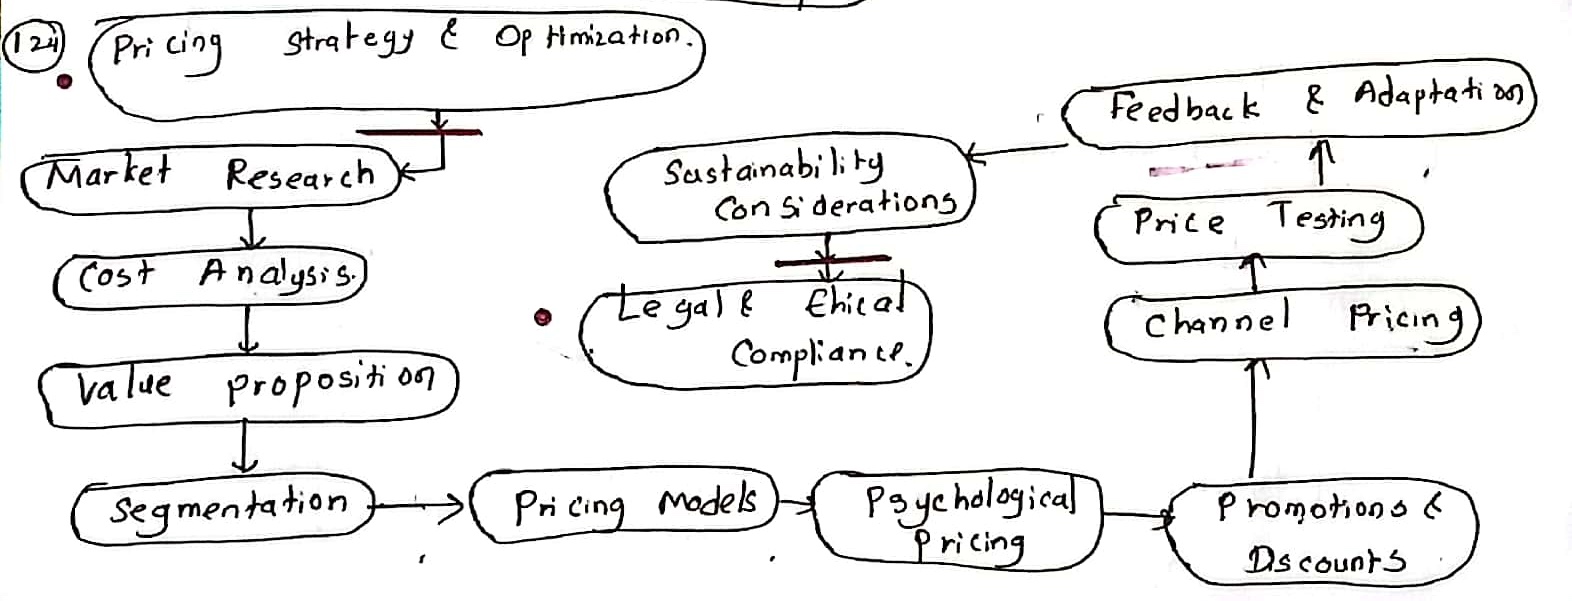 124
Pricing Strategy & Optimization.
Market Research
Cost Analysis.
Value proposition
Segmentation
Pricing Models
Psychological
Pricing
Promotions &
Discounts
Channel Pricing
Price Testing
Feedback & Adaptation
Sustainability
Considerations
Legal & Ehical
Compliance.